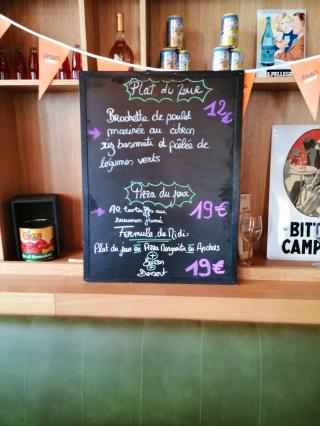 Plat du jour
Brochette de poulet 12€
marinée au citron
riz basmati et poêlée de
légumes verts
Pizza du jour
Al tartuffo ou 19€
saumon fumé
Formule du Midi:
Plat du jour ou Pizza Margarita ou Anchois
+
Boisson
+
Dessert 19€
PELLEG
BITT
CAMP